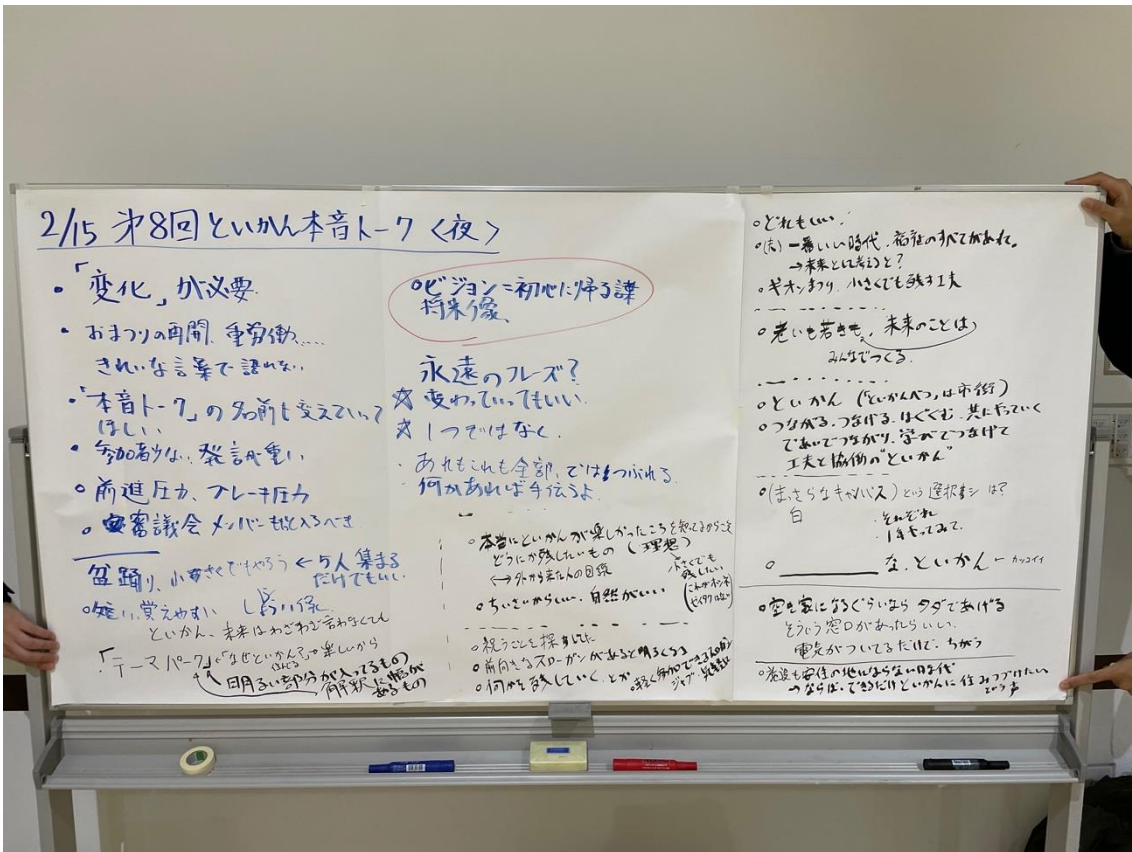 2/15 第8回といかん本音トーク〈夜〉
・「変化」が必要
・おまつりの再開、重労働、……
きれいな言葉で語れない
・「本音トーク」の名前も変えていって
ほしい
・参加者少ない、発言重い
○前進圧力、ブレーキ圧力
○審議会メンバーも入るべき
盆踊り、小さくてもやろう ← 5人集まる
だけでもいい
○短い、覚えやすい
といかん、未来はわざわざ言わなくても
「テーマパーク」 なぜといかん?→楽しいから
明るい部分が入ってるもの
解釈に幅が
あるもの
○ビジョン=初心に帰る譯
将来像、
永遠のフレーズ?
☆変わっていってもいい
☆1つではなく
・あれもこれも全部、ではつぶれる
・何かあれば手伝うよ
○本当にといかんが楽しかったころを知ってるからこそ
どうにか残したいもの (理想)
小さくても
残したい
○ちいさいからいい、自然がいい
○祝うことを探す
○前向きなスローガンがあると明るくなる
○何かを残していく、とか
○どれもいい
一番いい時代、
→未来として考えると?
○ギオンまつり、小さくても残す工夫
○老いも若きも、未来のことは
みんなでつくる
○といかん (“といかんべつ”は市街)
○つながる、つなげる、はぐくむ、共にやっていく
であいでつながり、学びでつなげて
工夫と協働の“といかん”
○(まっさらなキャンバス)という選択キシは?
白
・それぞれ
・1年やってみて、
○________な、といかん ← カッコイイ
○空き家になるぐらいなら タダであげる
そういう窓口があったらいい、
電気がついてるだけで、ちがう
安住の地にならない時代
→ならば、できるだけといかんに住みつづけたい
という声